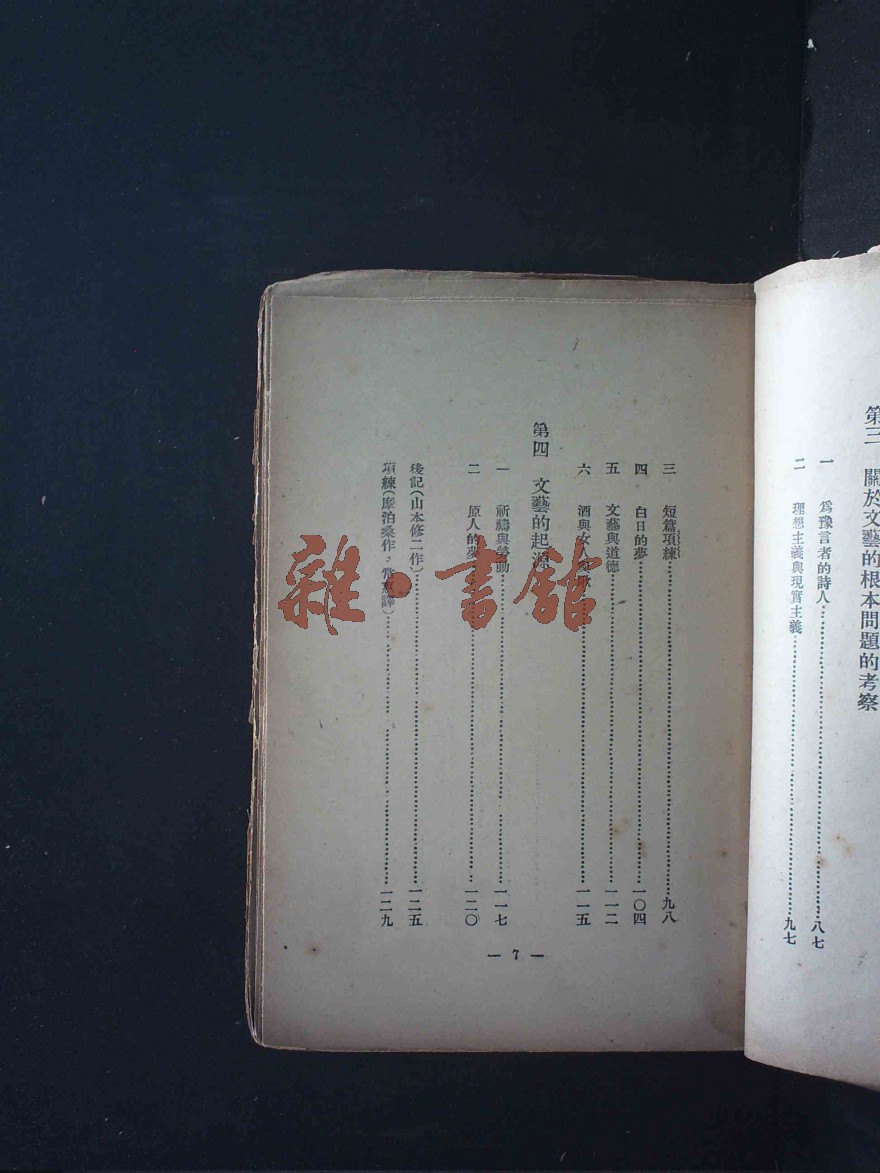 第三 關於文藝的根本問題的考察
一 爲豫言者的詩人……八七
二 理想主義與現實主義……九七
三 短篇項練……九八
四 白日的夢……一〇四
五 文藝與道德……一一二
六 酒與女人與歌……一一五
第四 文藝的起源
一 祈禱與勞動……一一七
二 原人的夢……一二〇
後記(山本修二作)……一二五
項練(摩泊桑作,常惠譯)……一二九
— 7 —
雜·書館